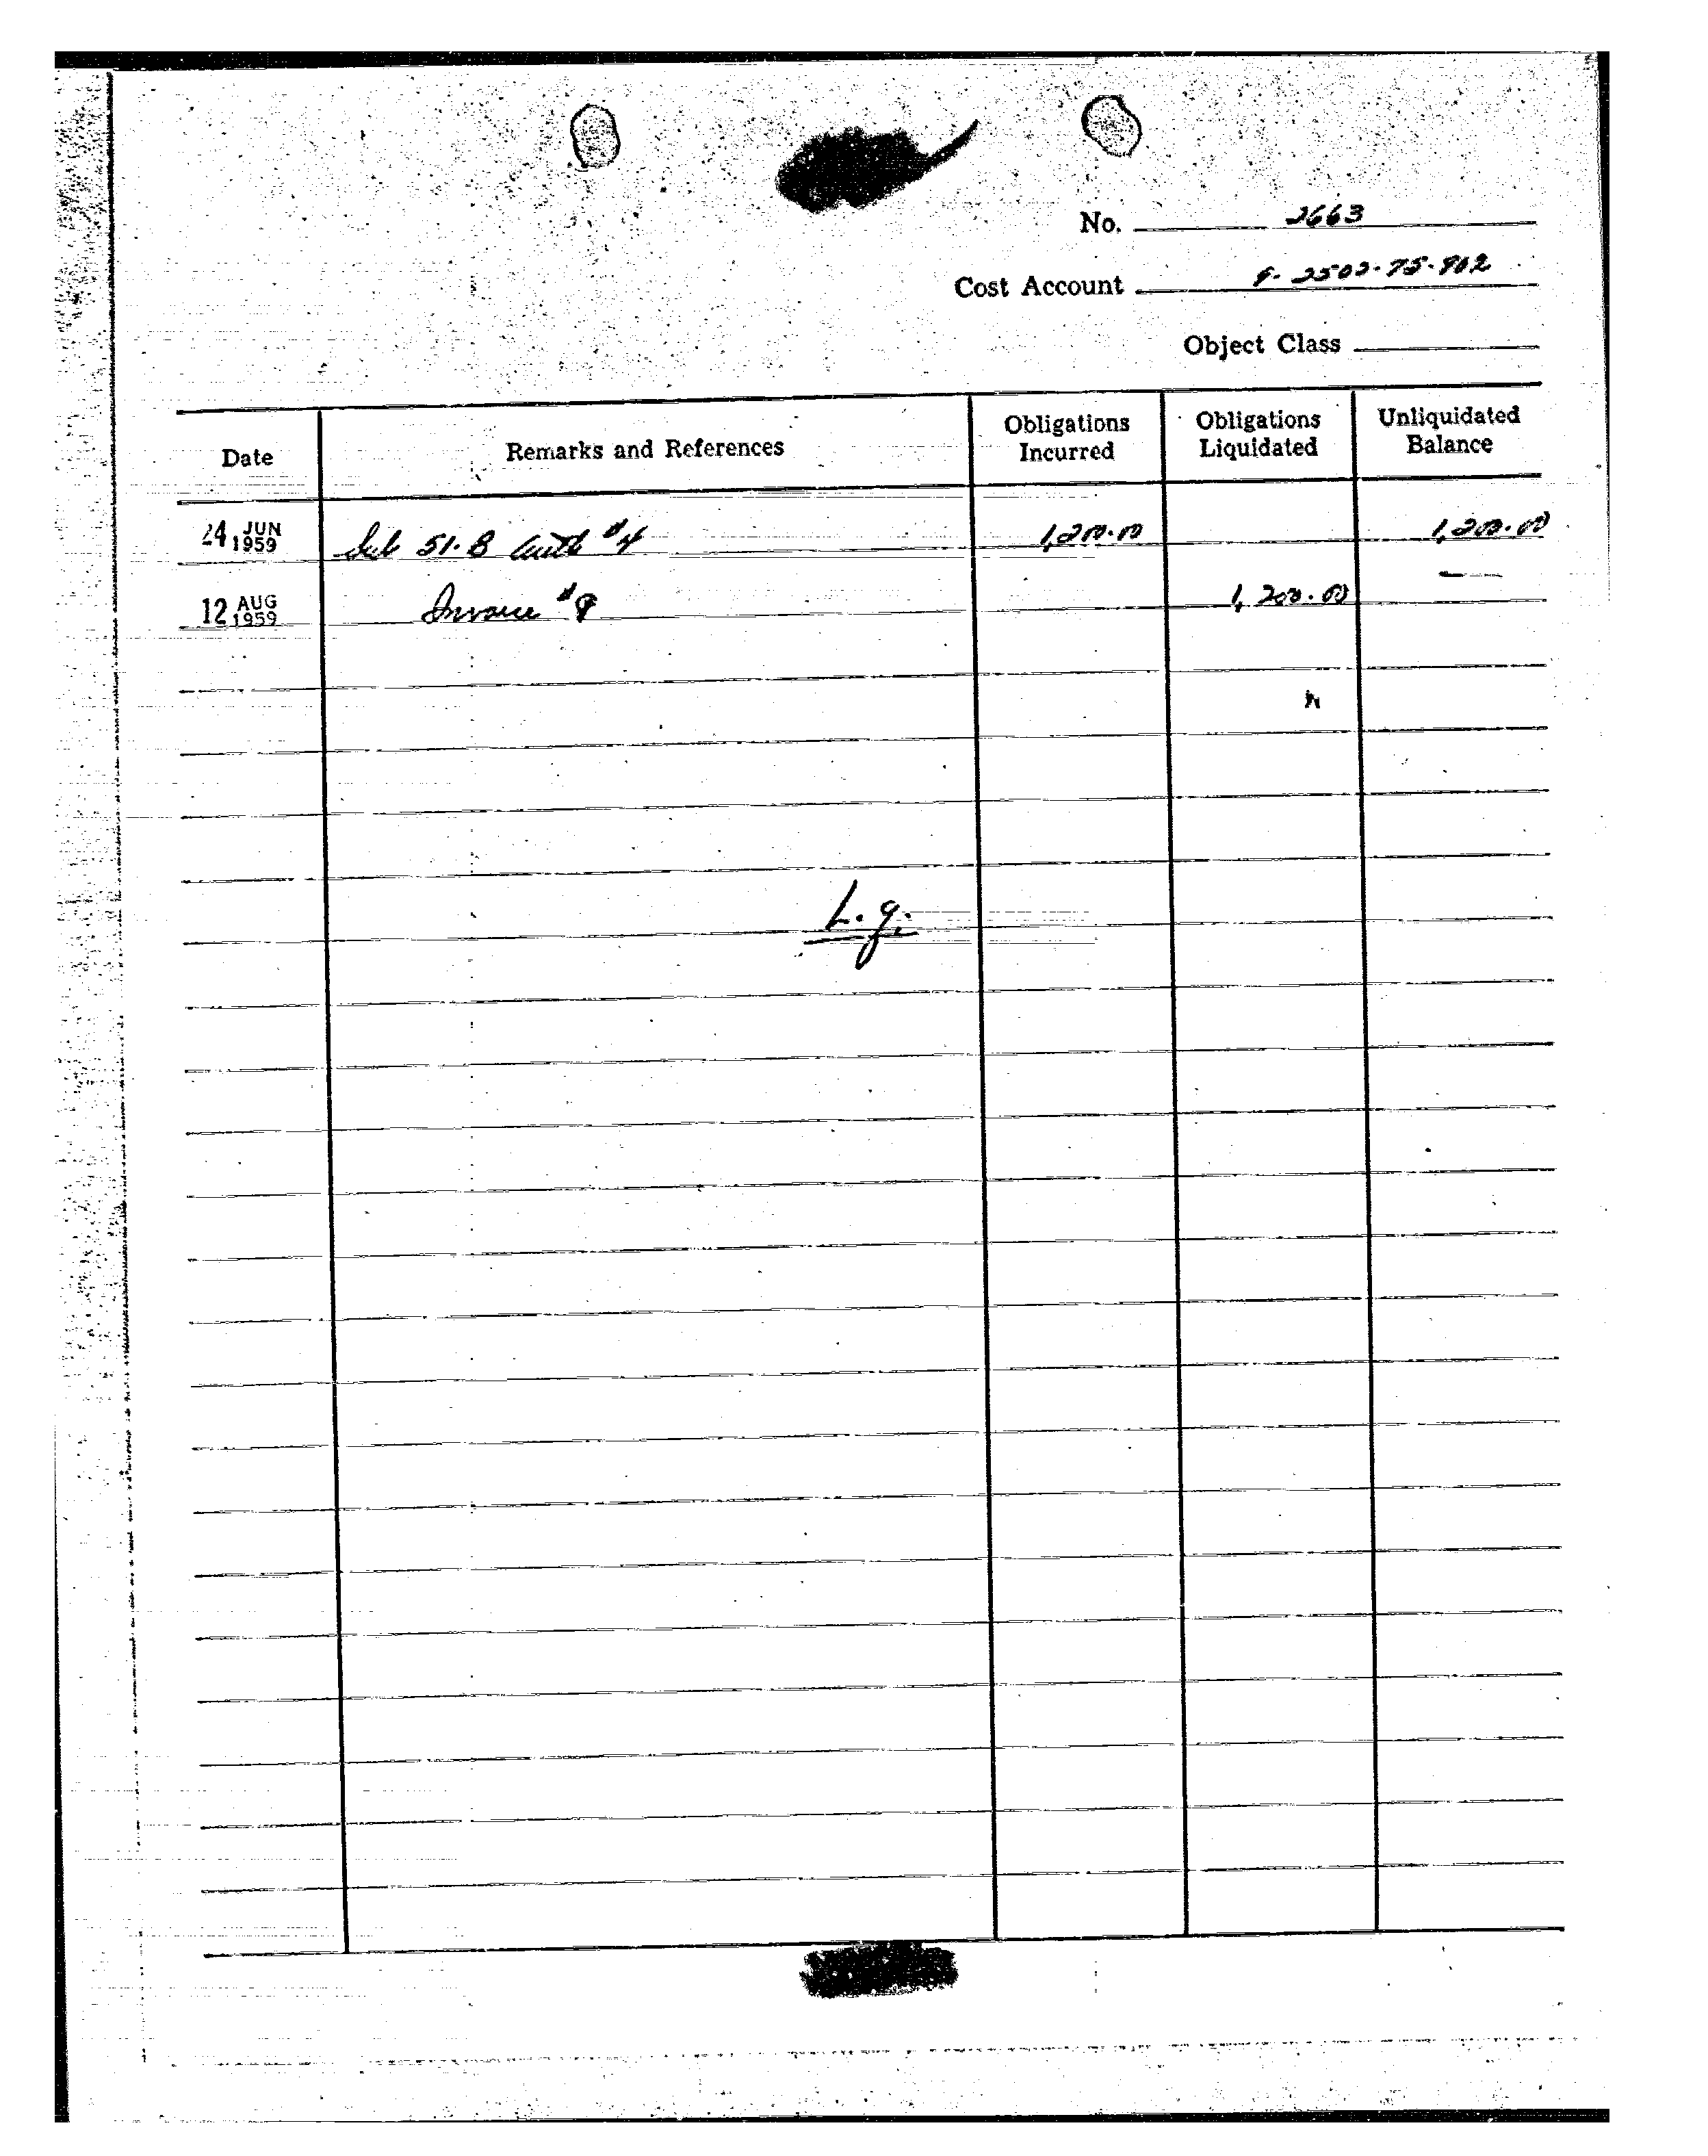 No. 2663
Cost Account 9-2502-75-902
Object Class
Date Remarks and References Obligations Incurred Obligations Liquidated Unliquidated Balance
24 JUN 1959 Sub 51-B Auth #4 1,200.00 1,200.00
12 AUG 1959 Invoice #9 1,200.00 —
L.g.